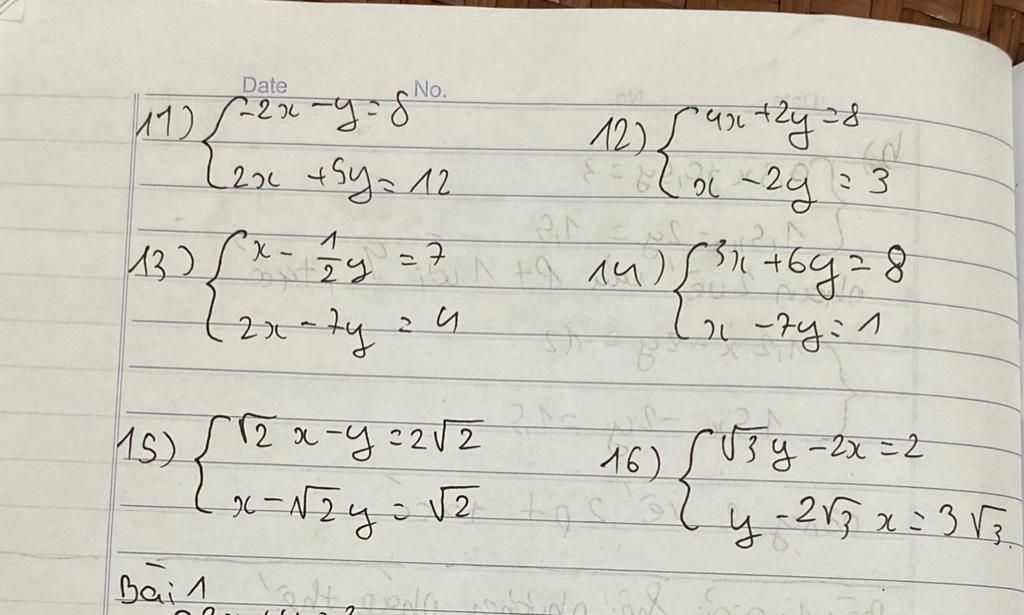 Date No.
11) { -2x - y = 8
2x + 5y = 12
12) { 4x + 2y = 8
x - 2y = 3
13) { x - 1/2 y = 7
2x - 7y = 4
14) { 3x + 6y = 8
x - 7y = 1
15) { √2 x - y = 2√2
x - √2 y = √2
16) { √3 y - 2x = 2
y - 2√3 x = 3√3.
Bài 1